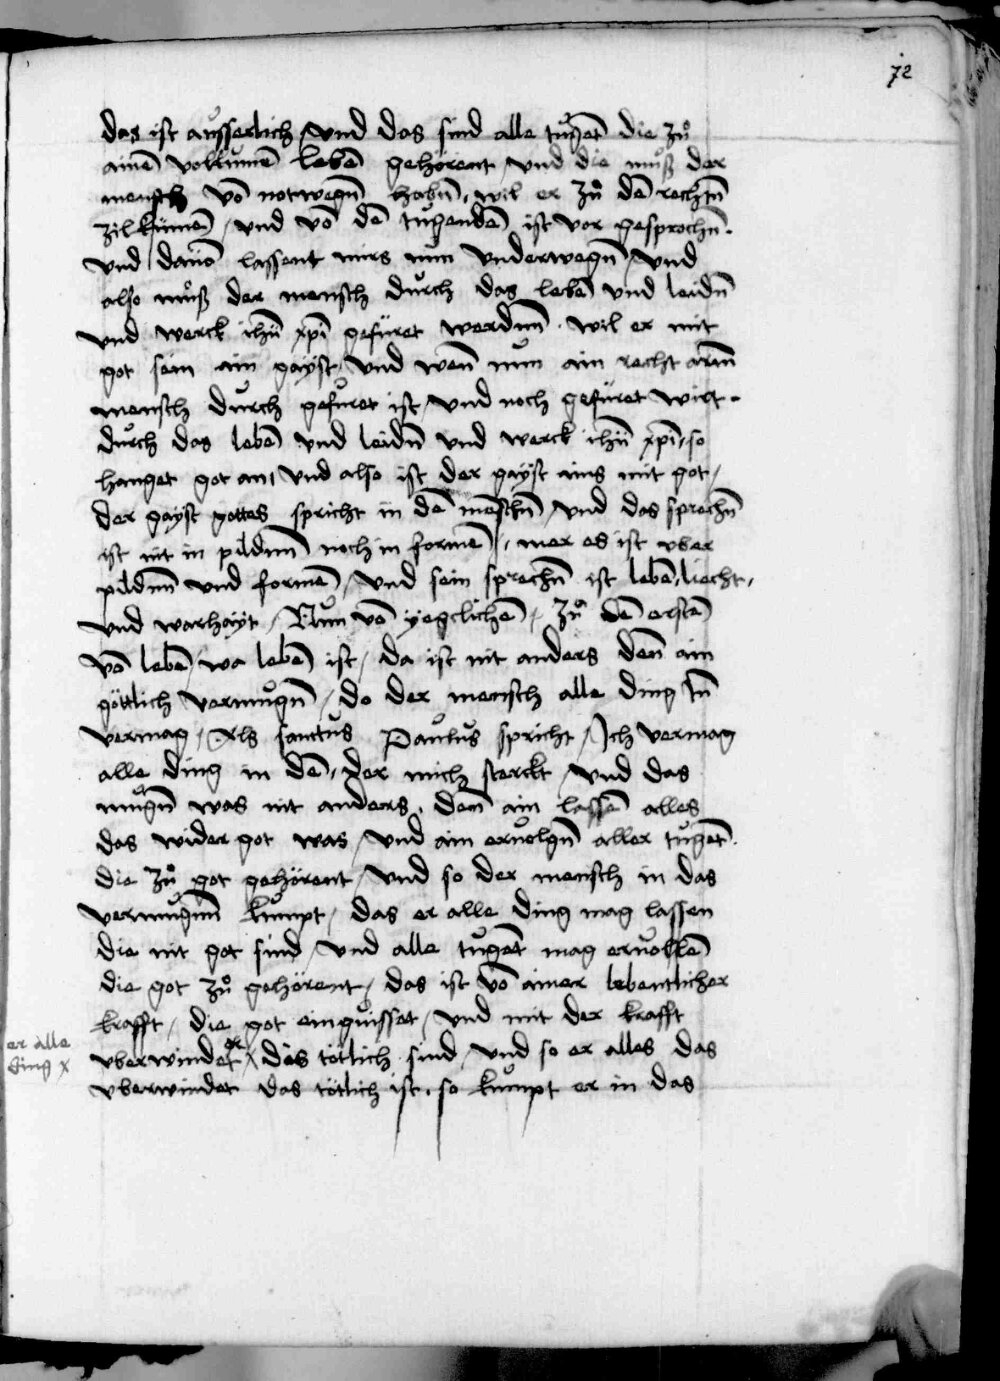 72
das ist ausserlich / vnd das sind alle tugēt die zů
ainē volkūmē lebē gehörent / vnd die můß der
mensch vō notwegn̄ habn̄ , wil er zů dē rechtn̄
zil kūmē / vnd vō dē tugendē ist vor gesprochn̄ .
vnd dauō lassent mirs nun vnderwegn̄ / vnd
also můß der mensch durch das lebē vnd leidn̄
vnd werck ihū xp̄i gefüret werdnn̄ . wil er mit
got sein ain gayst / vnd wen̄ nun ain recht armn̄
mensch durch gefüret ist / vnd noch gefüret wirt .
durch das lebē vnd leidn̄ vnd werck ihū xp̄i , so
hanget got an , vnd also ist der gayst ains mit got /
der gayst gottes spricht in dē menschn̄ / vnd das sprechn̄
ist nit in pildnn̄ noch in formē , mer es ist vber
pildnn̄ vnd formē / vnd sein sprechn̄ ist lebē , liecht ,
vnd warhayt / Nun vō yegclichē / zů dē erstē
vō lebē / wo lebē ist / da ist nit anders den̄ ain
göttlich vermugn̄ / do der mensch alle ding in̄
vermag / Als sanctus Paulus spricht / Ich vermag
alle ding in dē , der mich sterckt / vnd das
mugn̄ was nit anders , den̄ ain lassē alles
das wider got was / vnd ain eruolgn̄ aller tugēt .
die zů got gehörent / vnd so der mensch in das
vermugnn̄ kumpt / das er alle ding mag lassen
die nit got sind / vnd alle tugēt mag eruollē
die got zů gehörent / das ist vō ainer lebentlicher
krafft / die got einguisset / vnd mit der krafft
er alle
ding x
vberwindet er x das tötlich sind / vnd so er alles das
vberwindet das tötlich ist . so kumpt er in das